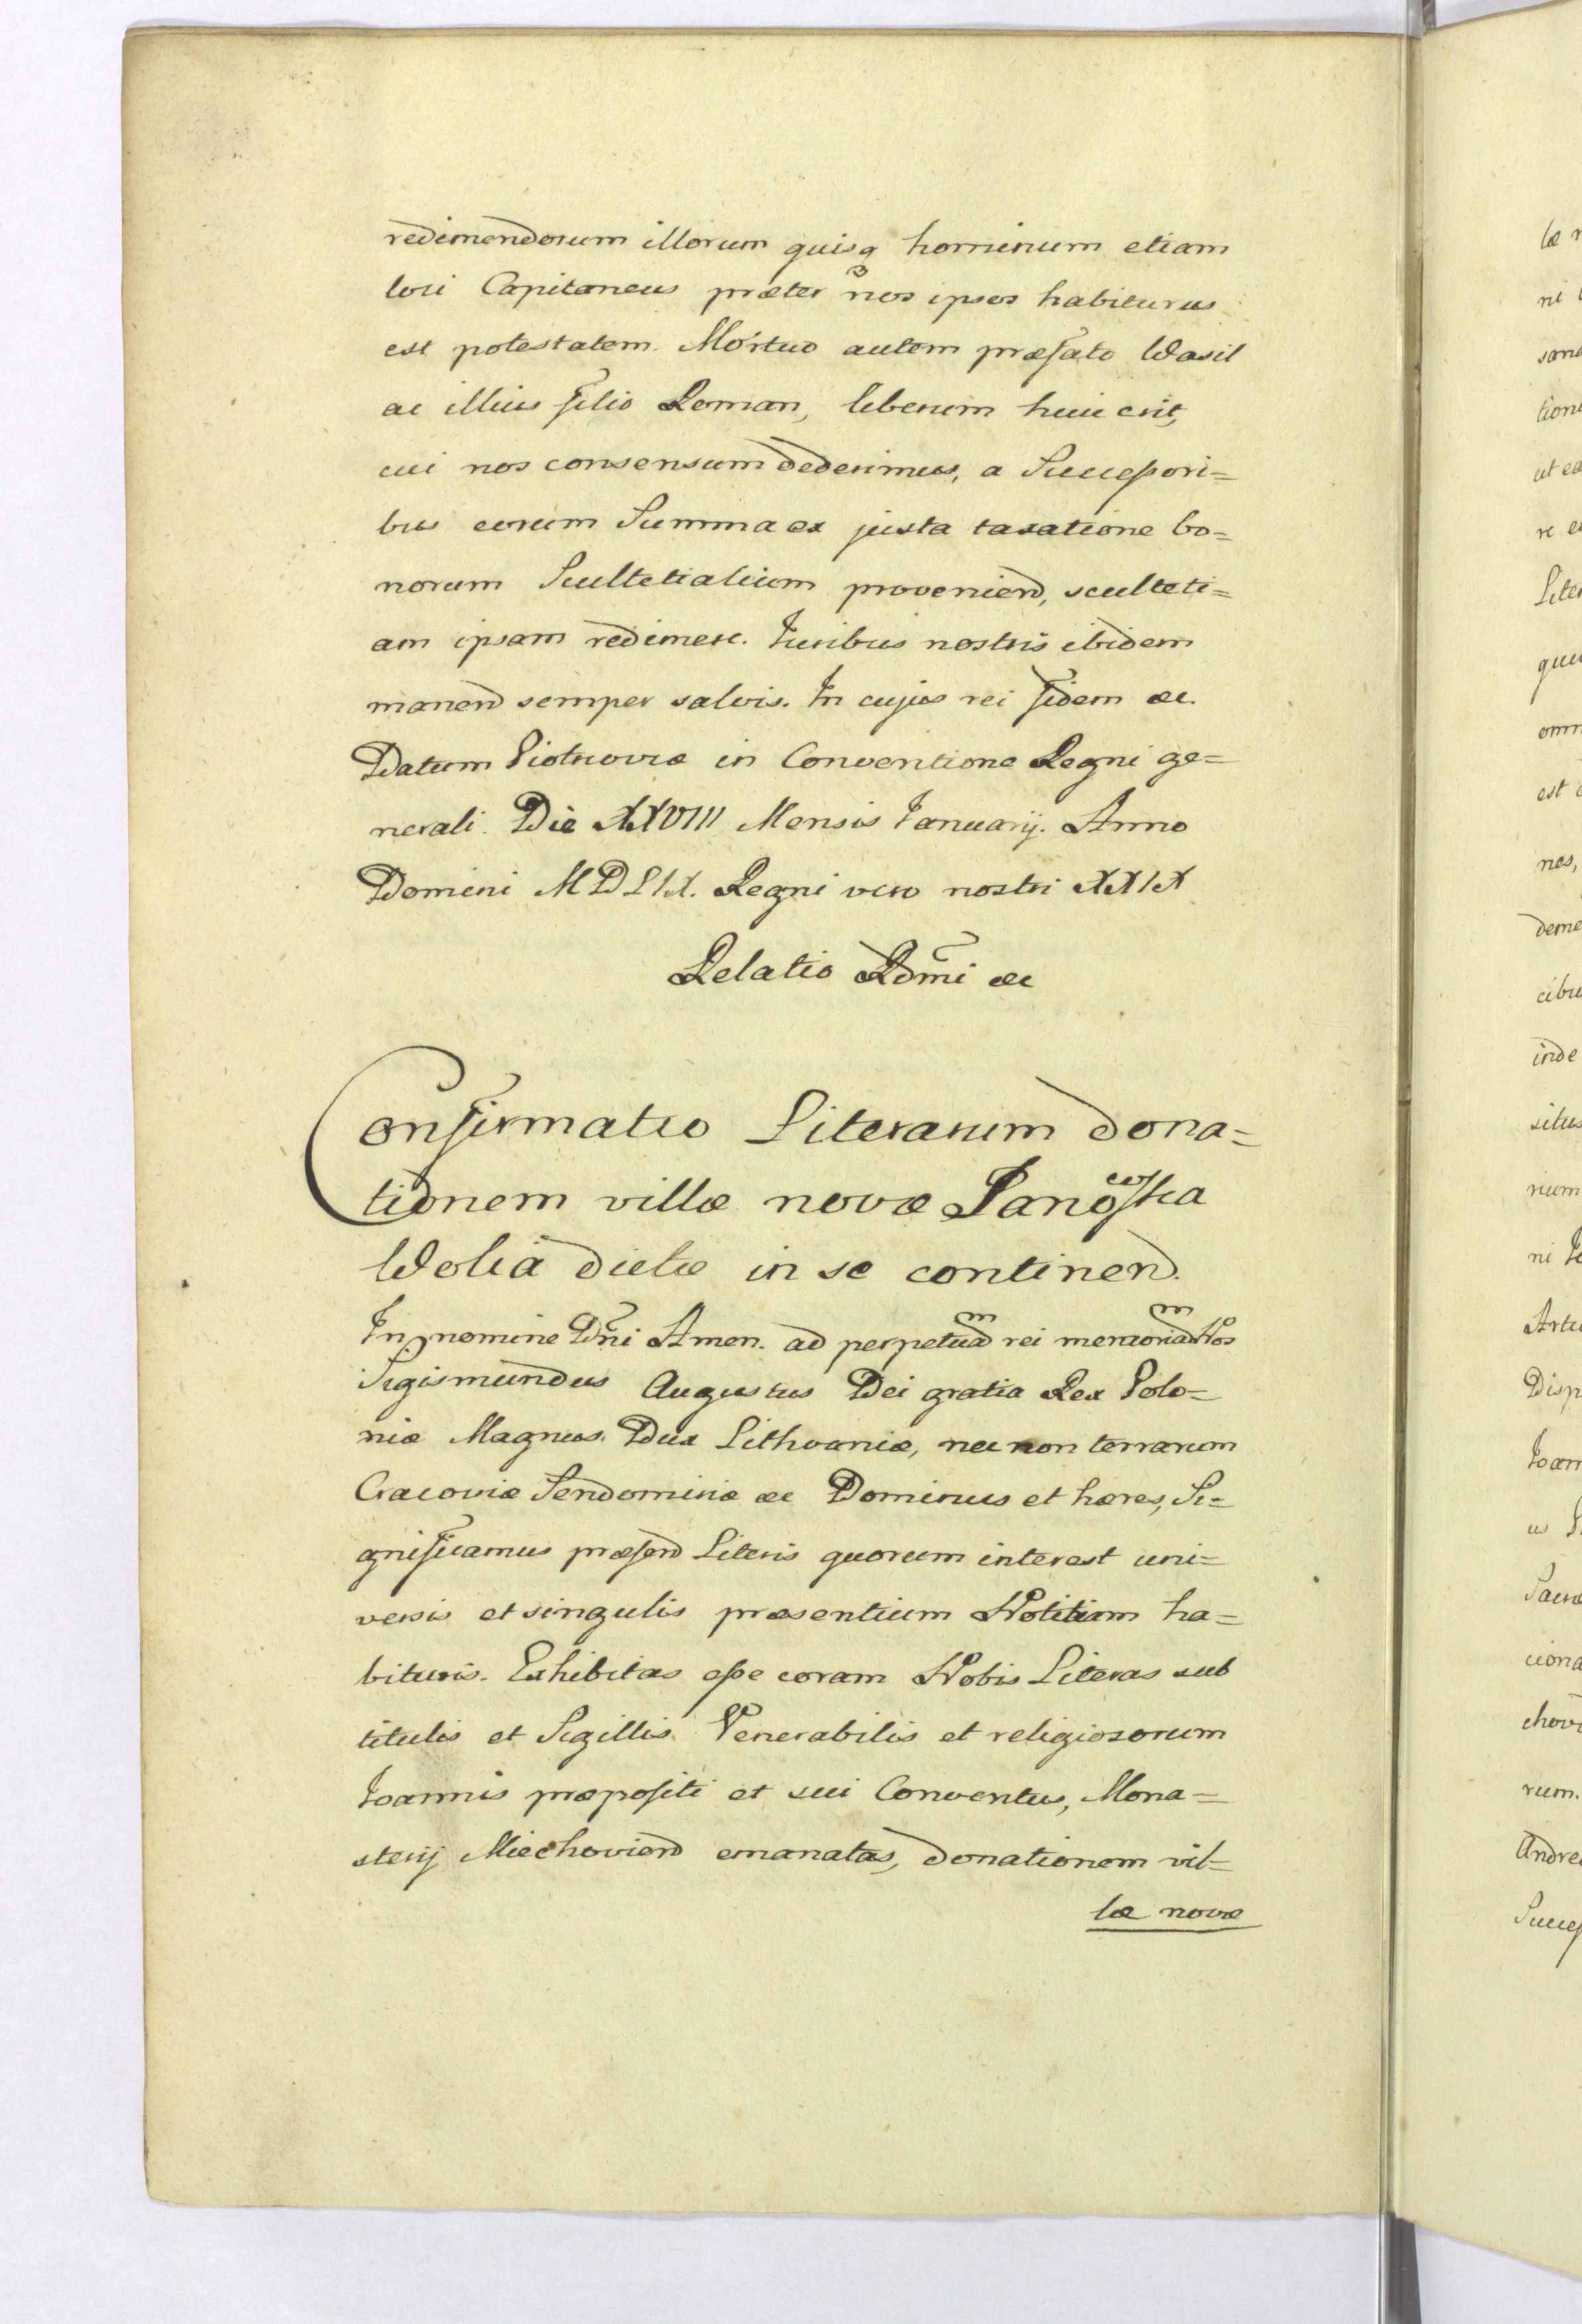 redimendorum illorum quisq hominum etiam
loci Capitaneus præter nos ipsos habiturus
est potestatem. Mortuo autem præfato Wasil
ac illius filio Roman, liberum huic erit,
cui nos consensum dederimus, a Successori=
bus eorum Summa ex justa taxatione bo=
norum Scultetialium proveniend, sculteti=
am ipsam redimere. Juribus nostris ibidem
manend semper salvis. In cujus rei fidem &c.
Datum Piotrcoviæ in Conventione Regni ge=
nerali. Die XXVIII Mensis Januarij. Anno
Domini MDLIX. Regni vero nostri XXIX
Relatio Rdmi &c
Confirmatio Literarum dona=
tionem villæ novæ Janowska
Wolia dictæ in se continend.
In nomine Dni Amen. ad perpetuam rei memoriam Nos
Sigismundus Augustus Dei gratia Rex Polo=
niæ Magnus Dux Lithvaniæ, nec non terrarum
Cracoviæ Sendomiriæ &c Dominus et hæres, Si=
gnificamus præsend Literis quorum interest uni=
versis et singulis præsentium Notitiam ha=
bituris. Exhibitas esse coram Nobis Literas sub
titulis et Sigillis Venerabilis et religiosorum
Joannis præpositi et sui Conventus, Mona=
sterij Miechoviend emanatas, donationem vil=
læ novæ